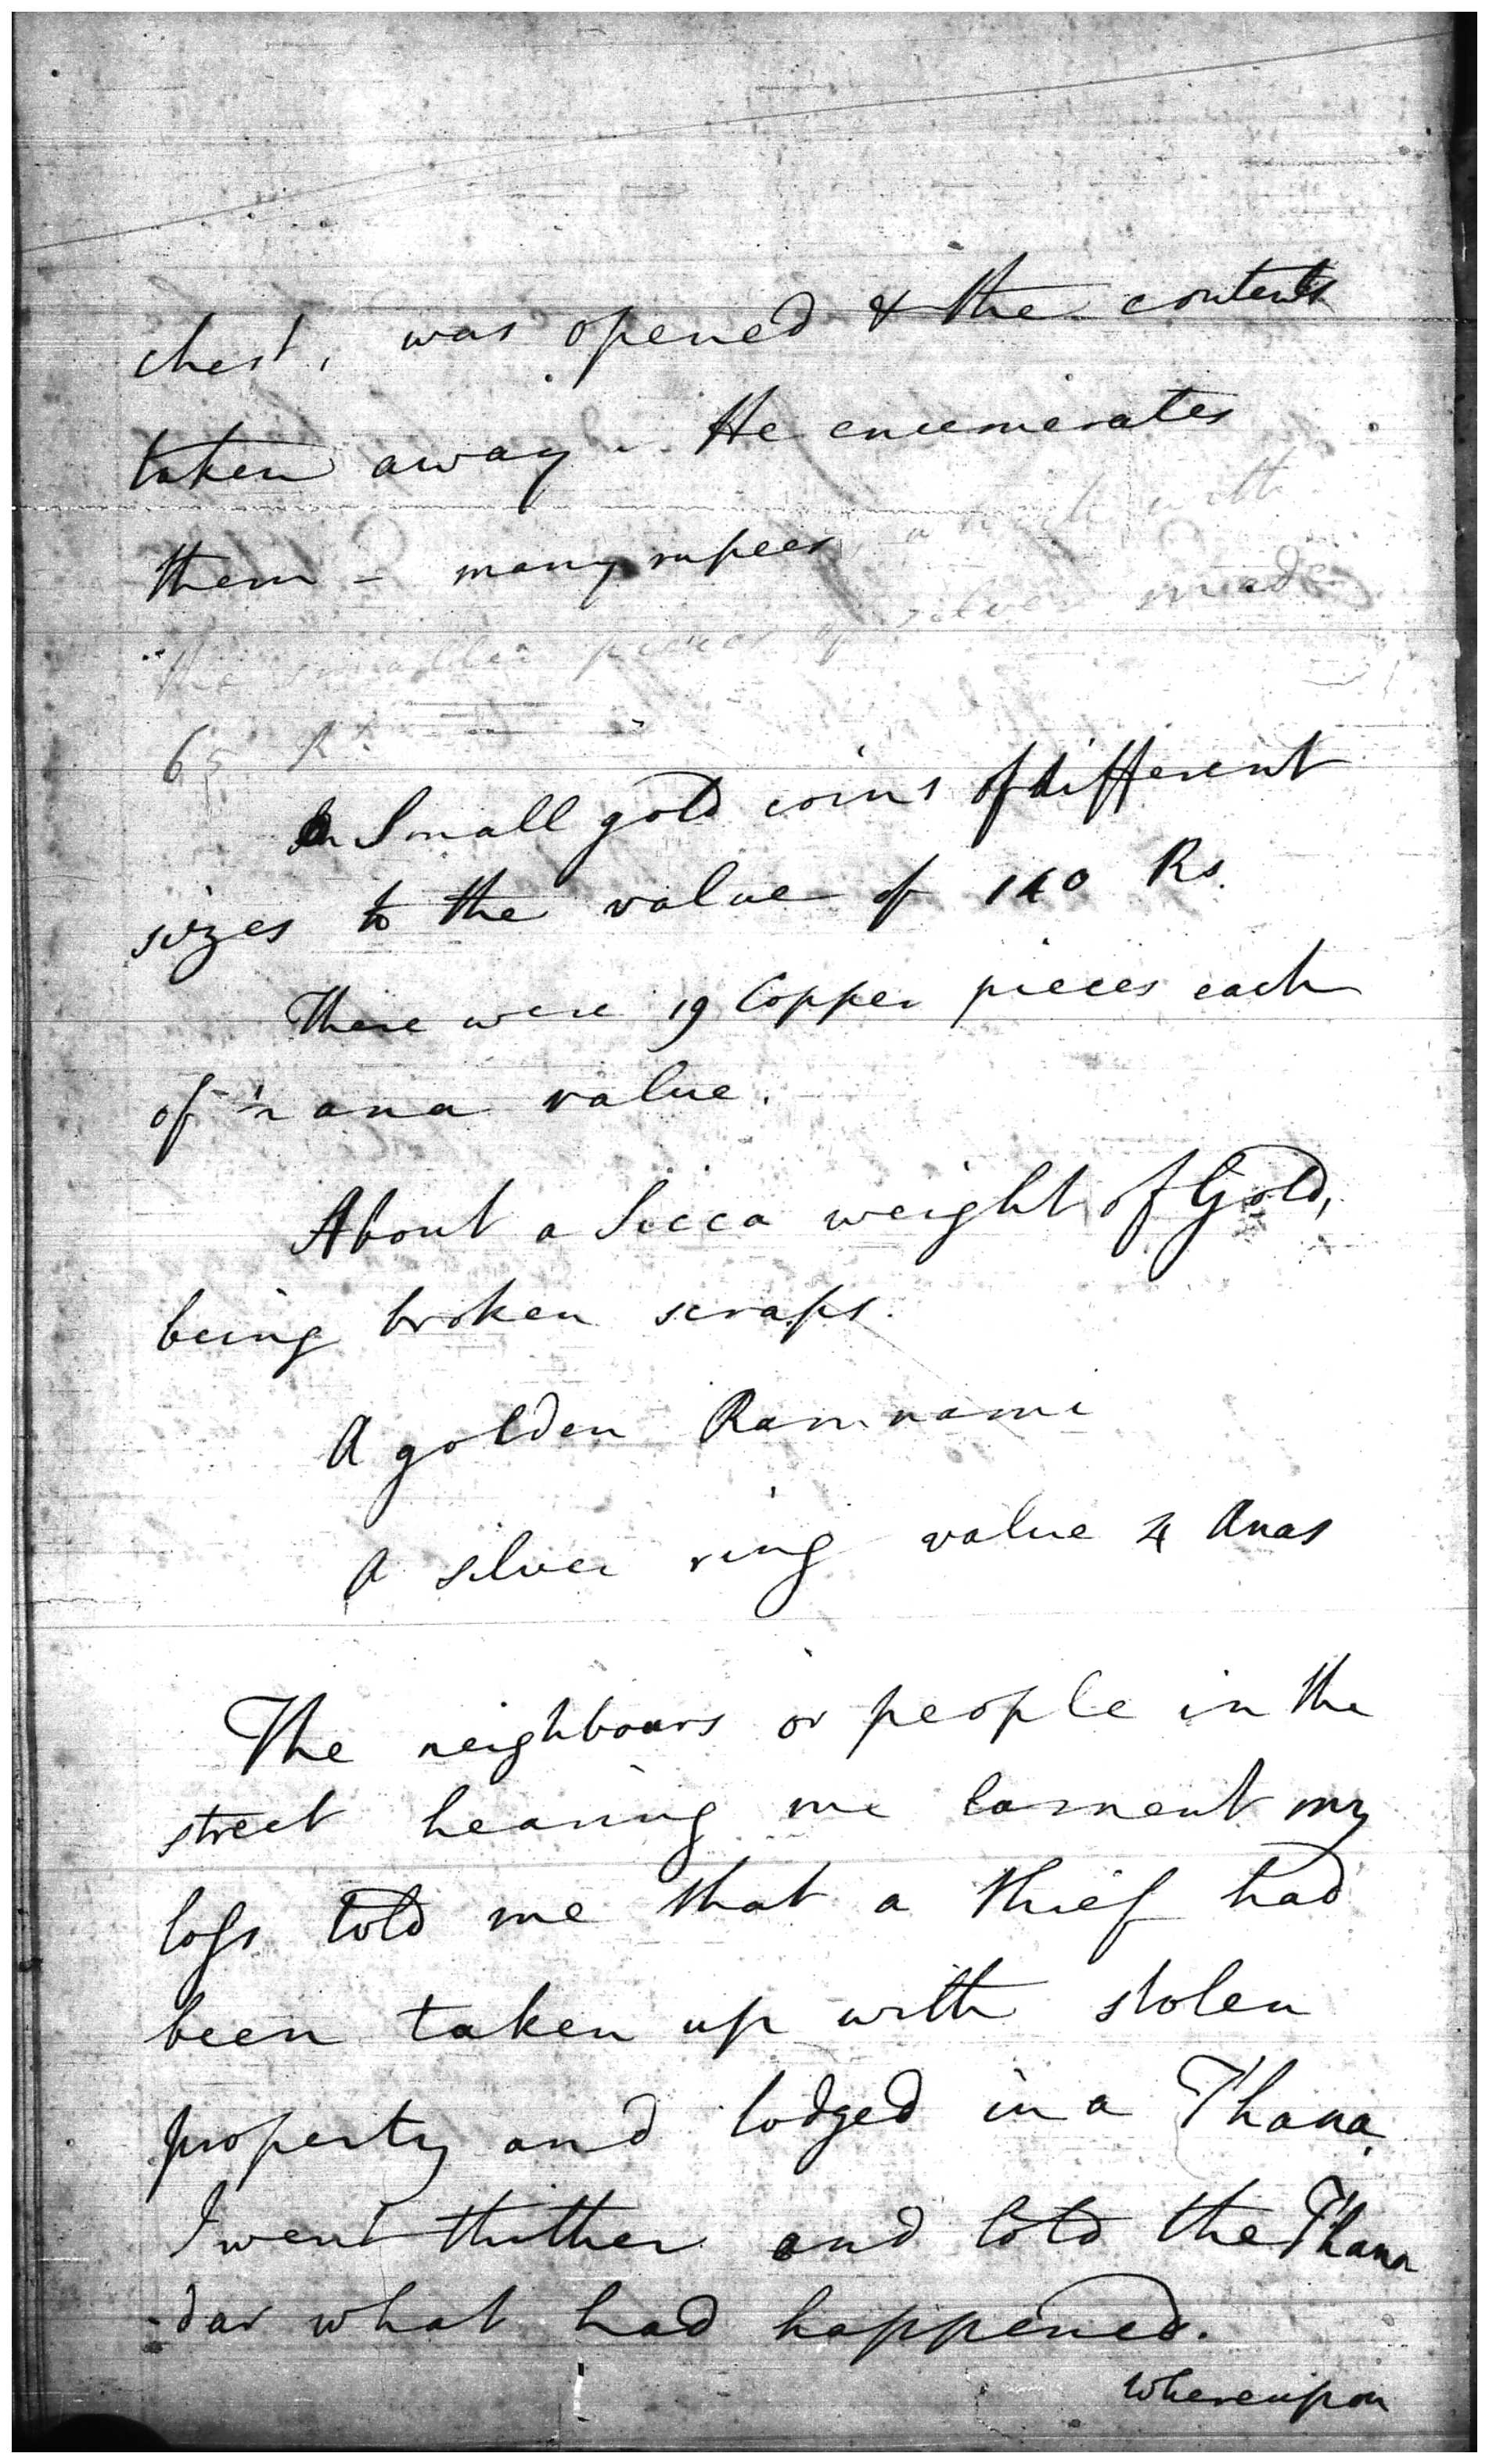 chest, was opened & the contents
taken away. He enumerates
them - many rupees which with
the smaller pieces of silver made
65 Rs.
Small gold coins of different
sizes to the value of 140 Rs.
There were 19 Copper pieces each
of ½ ana value.
About a Sicca weight of Gold,
being broken scraps.
A golden Ramnami
A silver ring value 4 Anas
The neighbours or people in the
street hearing me lament my
loss told me that a thief had
been taken up with stolen
property and lodged in a Thana.
I went thither and told the Thana
-dar what had happened.
Whereupon